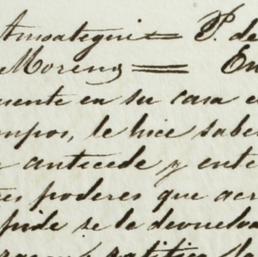 Amoategui = P. de
Moreno = En
mente en su casa e
mpos, le hice saber
antecede y ente
tres poderes que acr
pide se le devuelva
ratifica